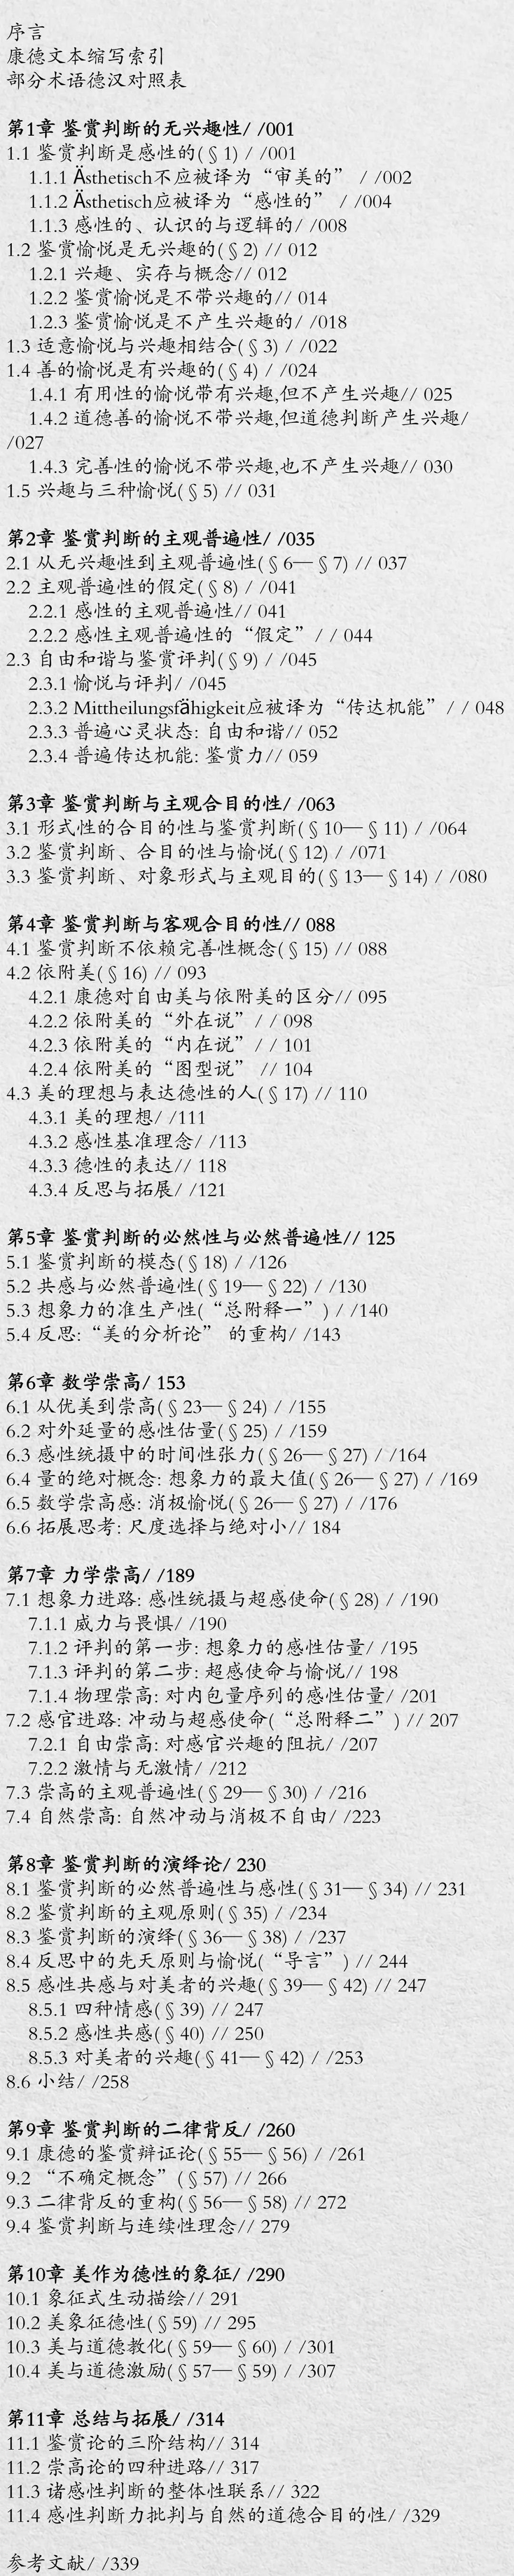 序言
康德文本缩写索引
部分术语德汉对照表
第1章 鉴赏判断的无兴趣性/ /001
1.1 鉴赏判断是感性的(§1) / /001
1.1.1 Ästhetisch不应被译为“审美的” / /002
1.1.2 Ästhetisch应被译为“感性的” / /004
1.1.3 感性的、认识的与逻辑的/ /008
1.2 鉴赏愉悦是无兴趣的(§2) // 012
1.2.1 兴趣、实存与概念// 012
1.2.2 鉴赏愉悦是不带兴趣的// 014
1.2.3 鉴赏愉悦是不产生兴趣的/ /018
1.3 适意愉悦与兴趣相结合(§3) / /022
1.4 善的愉悦是有兴趣的(§4) / /024
1.4.1 有用性的愉悦带有兴趣,但不产生兴趣// 025
1.4.2 道德善的愉悦不带兴趣,但道德判断产生兴趣/
/027
1.4.3 完善性的愉悦不带兴趣,也不产生兴趣// 030
1.5 兴趣与三种愉悦(§5) // 031
第2章 鉴赏判断的主观普遍性/ /035
2.1 从无兴趣性到主观普遍性(§6—§7) // 037
2.2 主观普遍性的假定(§8) / /041
2.2.1 感性的主观普遍性// 041
2.2.2 感性主观普遍性的“假定” / / 044
2.3 自由和谐与鉴赏评判(§9) / /045
2.3.1 愉悦与评判/ /045
2.3.2 Mittheilungsfähigkeit应被译为“传达机能” / / 048
2.3.3 普遍心灵状态: 自由和谐// 052
2.3.4 普遍传达机能: 鉴赏力// 059
第3章 鉴赏判断与主观合目的性/ /063
3.1 形式性的合目的性与鉴赏判断(§10—§11) / /064
3.2 鉴赏判断、合目的性与愉悦(§12) / /071
3.3 鉴赏判断、对象形式与主观目的(§13—§14) / /080
第4章 鉴赏判断与客观合目的性// 088
4.1 鉴赏判断不依赖完善性概念(§15) // 088
4.2 依附美(§16) // 093
4.2.1 康德对自由美与依附美的区分// 095
4.2.2 依附美的“外在说” / / 098
4.2.3 依附美的“内在说” / / 101
4.2.4 依附美的“图型说” // 104
4.3 美的理想与表达德性的人(§17) // 110
4.3.1 美的理想/ /111
4.3.2 感性基准理念/ /113
4.3.3 德性的表达// 118
4.3.4 反思与拓展/ /121
第5章 鉴赏判断的必然性与必然普遍性// 125
5.1 鉴赏判断的模态(§18) / /126
5.2 共感与必然普遍性(§19—§22) / /130
5.3 想象力的准生产性(“总附释一”) / /140
5.4 反思:“美的分析论” 的重构/ /143
第6章 数学崇高/ 153
6.1 从优美到崇高(§23—§24) / /155
6.2 对外延量的感性估量(§25) / /159
6.3 感性统摄中的时间性张力(§26—§27) / /164
6.4 量的绝对概念: 想象力的最大值(§26—§27) / /169
6.5 数学崇高感: 消极愉悦(§26—§27) / /176
6.6 拓展思考: 尺度选择与绝对小// 184
第7章 力学崇高/ /189
7.1 想象力进路: 感性统摄与超感使命(§28) / /190
7.1.1 威力与畏惧/ /190
7.1.2 评判的第一步: 想象力的感性估量/ /195
7.1.3 评判的第二步: 超感使命与愉悦// 198
7.1.4 物理崇高: 对内包量序列的感性估量/ /201
7.2 感官进路: 冲动与超感使命(“总附释二”) // 207
7.2.1 自由崇高: 对感官兴趣的阻抗/ /207
7.2.2 激情与无激情/ /212
7.3 崇高的主观普遍性(§29—§30) / /216
7.4 自然崇高: 自然冲动与消极不自由/ /223
第8章 鉴赏判断的演绎论/ 230
8.1 鉴赏判断的必然普遍性与感性(§31—§34) // 231
8.2 鉴赏判断的主观原则(§35) / /234
8.3 鉴赏判断的演绎(§36—§38) / /237
8.4 反思中的先天原则与愉悦(“导言”) // 244
8.5 感性共感与对美者的兴趣(§39—§42) // 247
8.5.1 四种情感(§39) // 247
8.5.2 感性共感(§40) // 250
8.5.3 对美者的兴趣(§41—§42) / /253
8.6 小结/ /258
第9章 鉴赏判断的二律背反/ /260
9.1 康德的鉴赏辩证论(§55—§56) / /261
9.2 “不确定概念” (§57) // 266
9.3 二律背反的重构(§56—§58) // 272
9.4 鉴赏判断与连续性理念// 279
第10章 美作为德性的象征/ /290
10.1 象征式生动描绘// 291
10.2 美象征德性(§59) // 295
10.3 美与道德教化(§59—§60) / /301
10.4 美与道德激励(§57—§59) / /307
第11章 总结与拓展/ /314
11.1 鉴赏论的三阶结构// 314
11.2 崇高论的四种进路// 317
11.3 诸感性判断的整体性联系// 322
11.4 感性判断力批判与自然的道德合目的性/ /329
参考文献/ /339